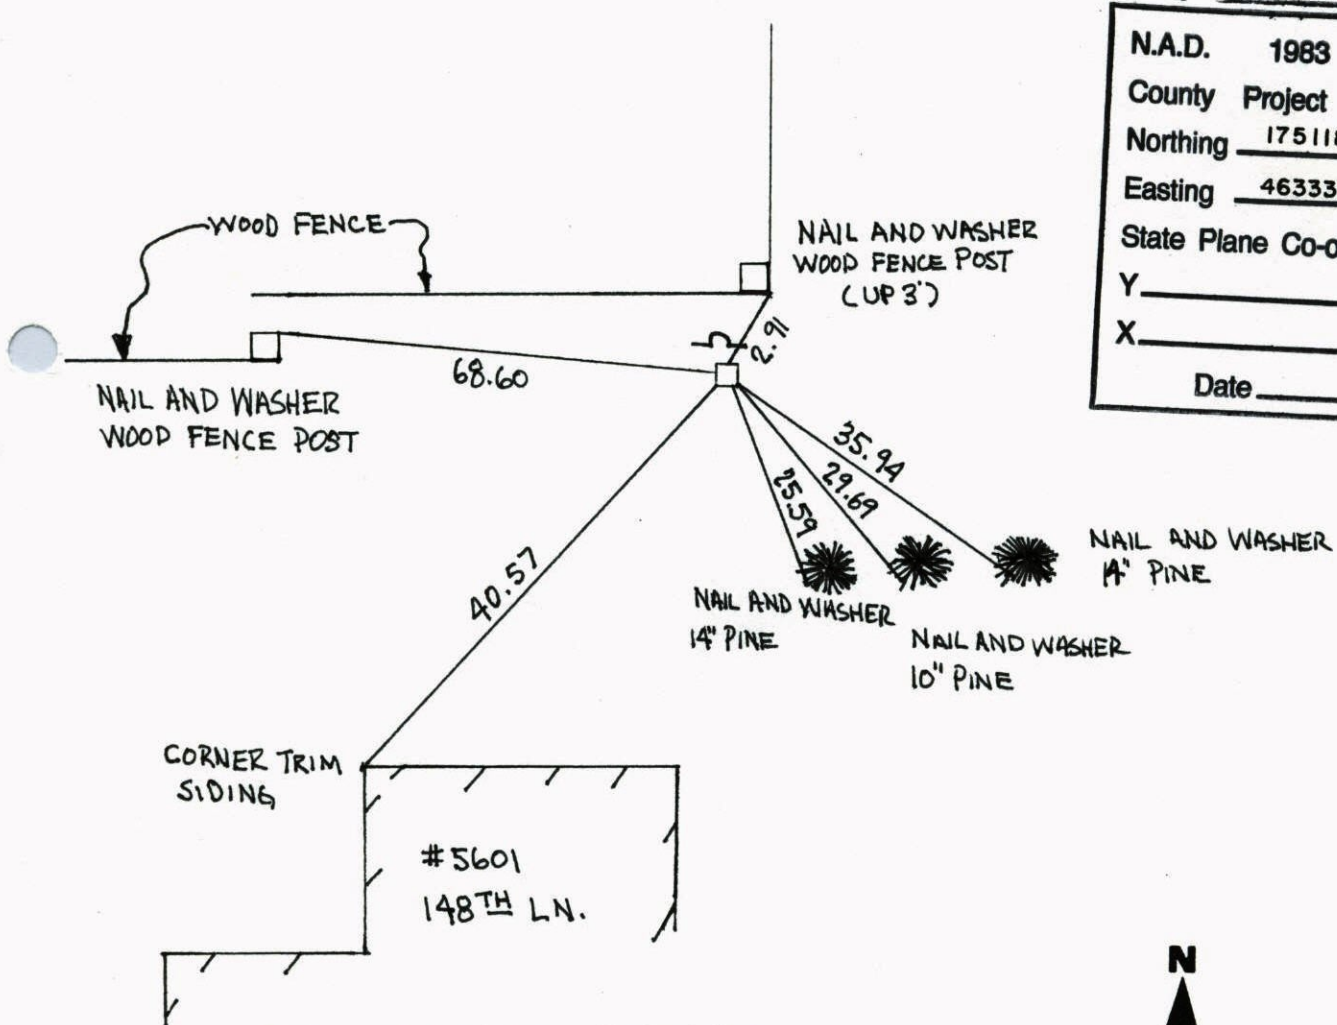 N.A.D. 1983
County Project
Northing 17511
Easting 46333
State Plane Co-o
Y
X
Date
WOOD FENCE
NAIL AND WASHER
WOOD FENCE POST
(UP 3')
2.91
68.60
NAIL AND WASHER
WOOD FENCE POST
35.94
29.69
25.59
40.57
NAIL AND WASHER
14" PINE
NAIL AND WASHER
14" PINE
NAIL AND WASHER
10" PINE
CORNER TRIM
SIDING
#5601
148TH LN.
N